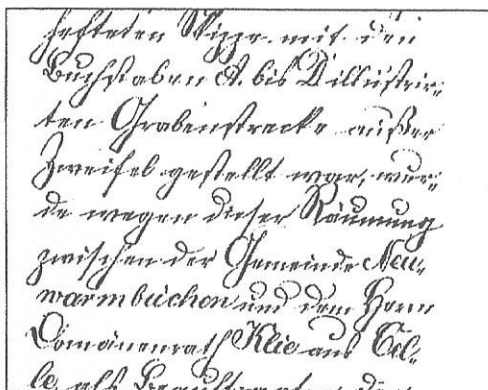 hefteten Skizze mit den
Buchstaben A. bis D illustrir-
ten Grabenstrecke außer
Zweifel gestellt war, wur-
de wegen dieser Räumung
zwischen der Gemeinde Neu-
warmbüchen und dem Herrn
Domänenrath Klie aus Cel-
le als Beauftragten der